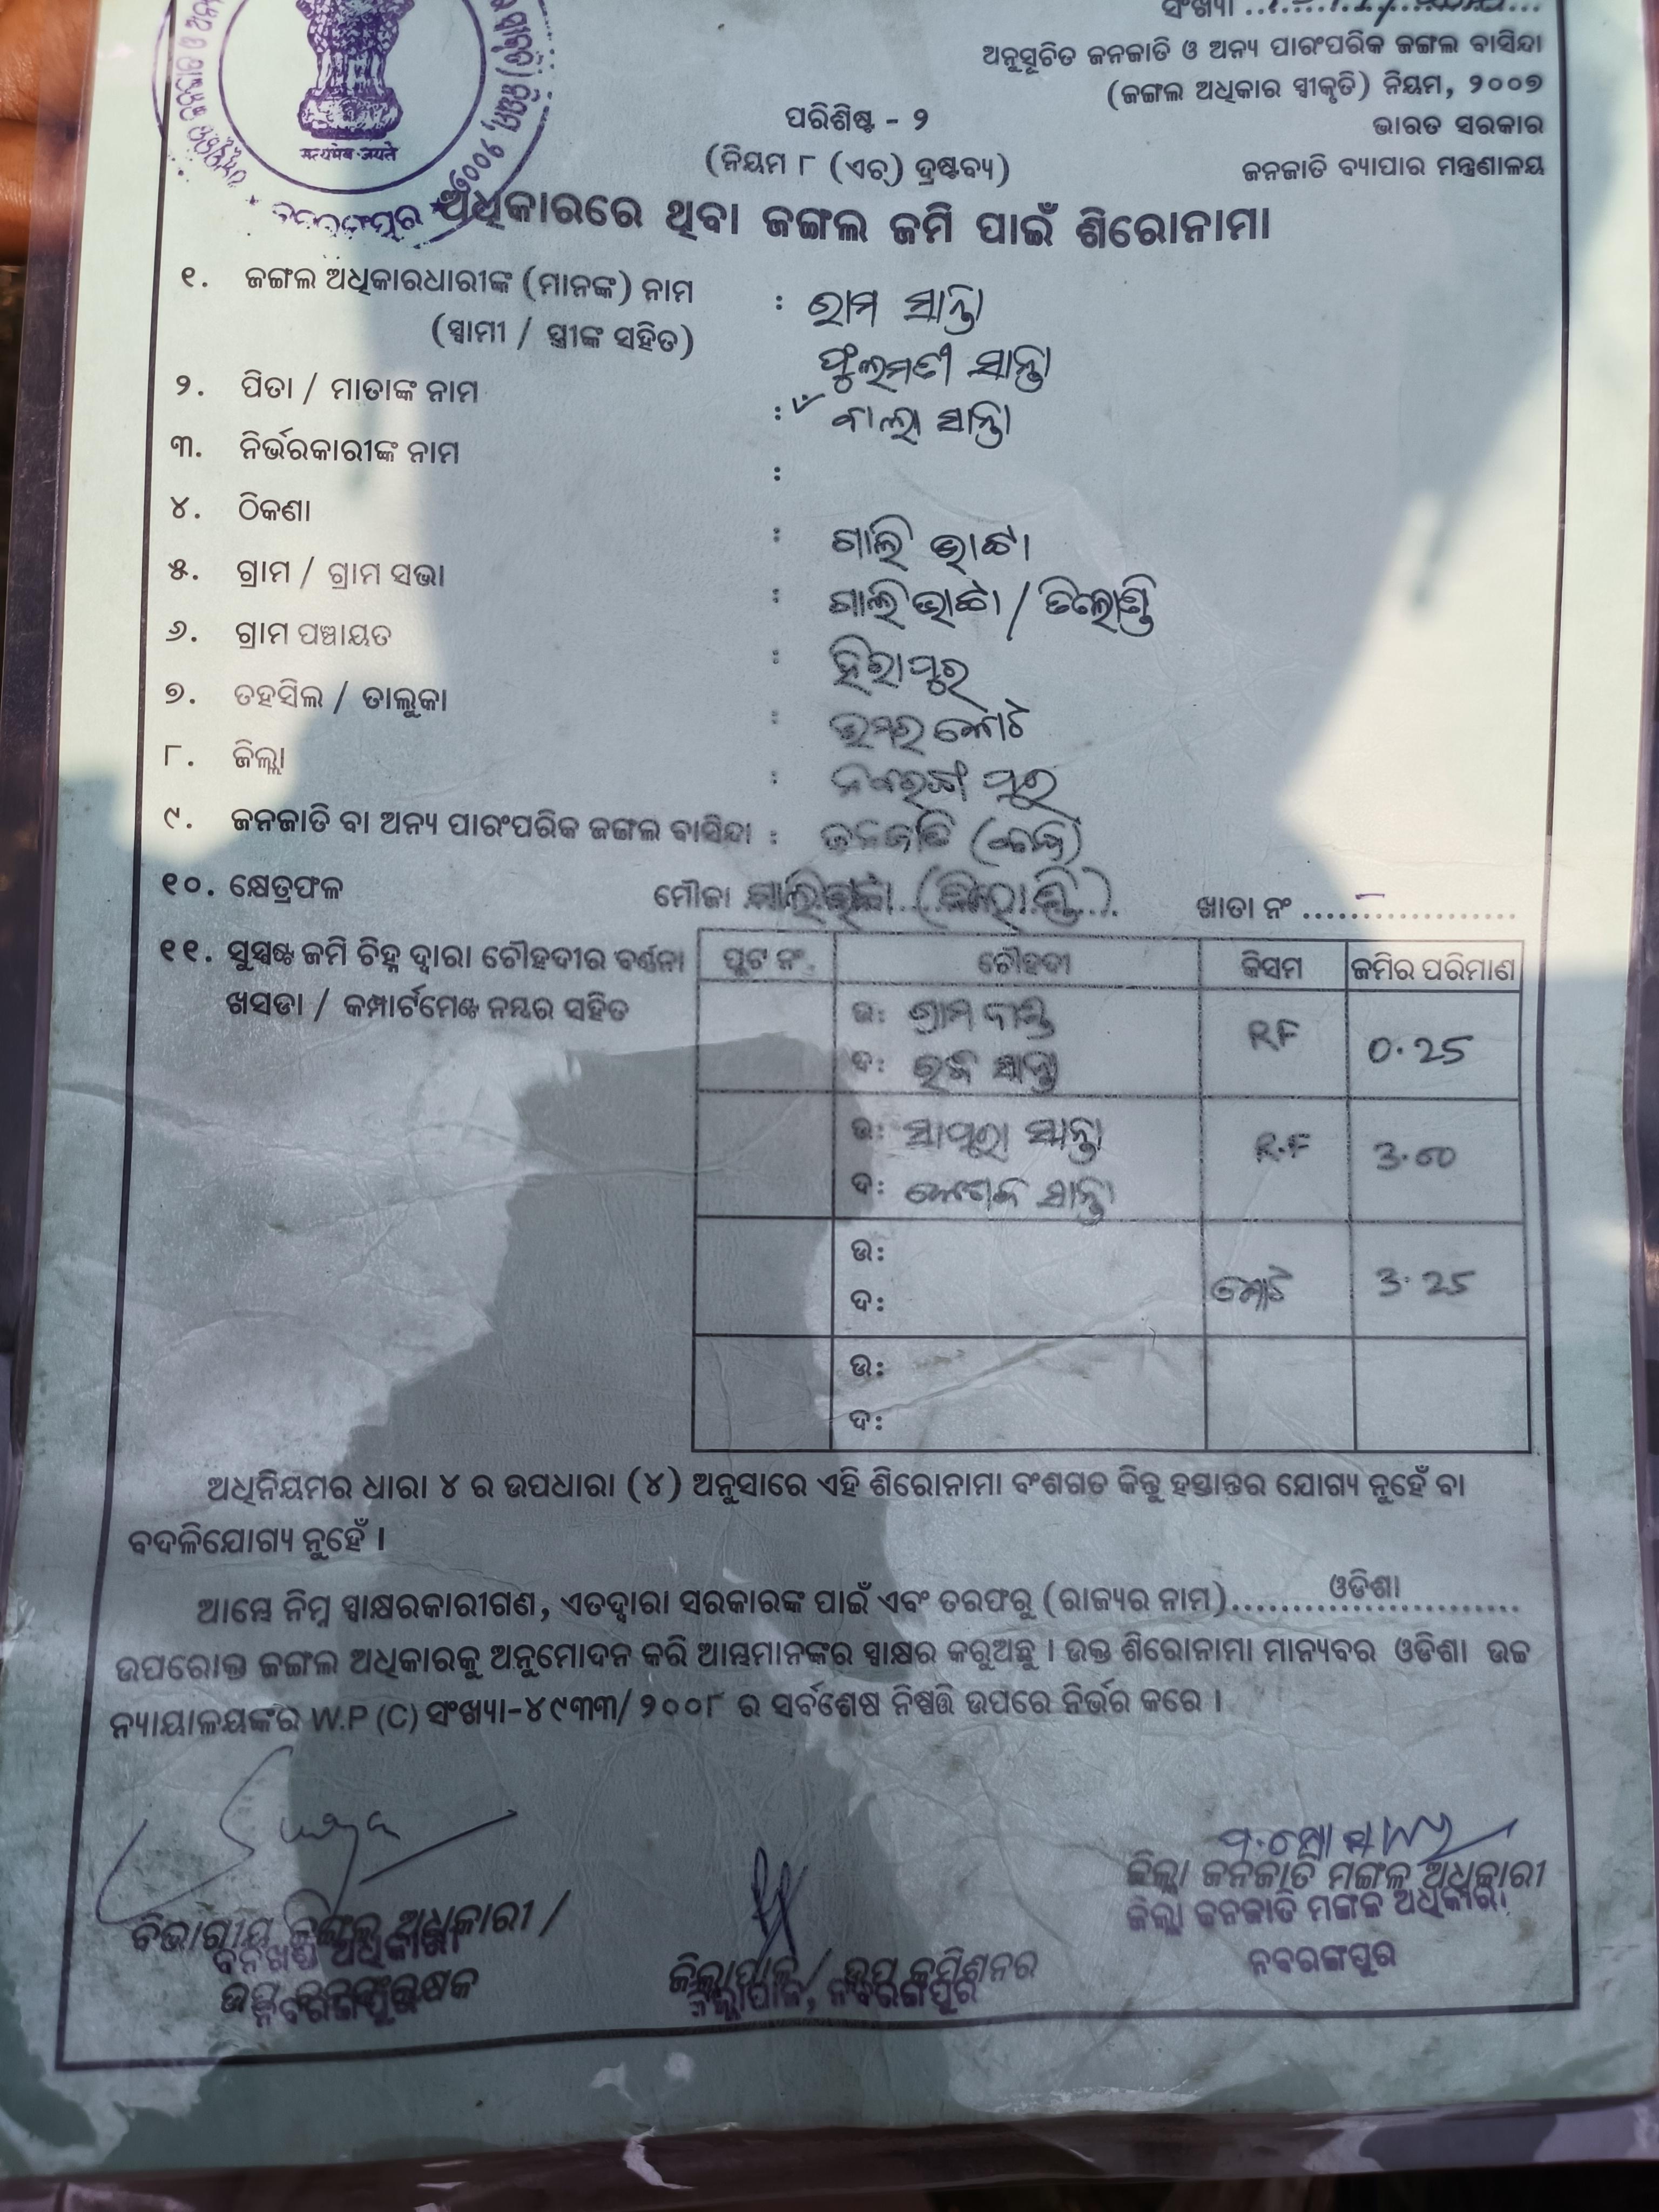 ସଂଖ୍ୟା
ଅନୁସୂଚିତ ଜନଜାତି ଓ ଅନ୍ୟ ପାରଂପରିକ ଜଙ୍ଗଲ ବାସିନ୍ଦା
(ଜଙ୍ଗଲ ଅଧିକାର ସ୍ୱୀକୃତି) ନିୟମ, ୨୦୦୭
ଭାରତ ସରକାର
ଜନଜାତି ବ୍ୟାପାର ମନ୍ତ୍ରଣାଳୟ
ପରିଶିଷ୍ଟ - ୨
(ନିୟମ ୮ (ଏଚ୍) ଦ୍ରଷ୍ଟବ୍ୟ)
सत्यमेव जयते
ନବରଙ୍ଗପୁର
ଅଧିକାରରେ ଥିବା ଜଙ୍ଗଲ ଜମି ପାଇଁ ଶିରୋନାମା
୧. ଜଙ୍ଗଲ ଅଧିକାରଧାରୀଙ୍କ (ମାନଙ୍କ) ନାମ : ରାମ ସାନ୍ତା
(ସ୍ୱାମୀ / ସ୍ତ୍ରୀଙ୍କ ସହିତ) ଫୁଲମତୀ ସାନ୍ତା
୨. ପିତା / ମାତାଙ୍କ ନାମ : ବାଲା ସାନ୍ତା
୩. ନିର୍ଭରକାରୀଙ୍କ ନାମ :
୪. ଠିକଣା : ଗାଲି ଭାଟା
୫. ଗ୍ରାମ / ଗ୍ରାମ ସଭା : ଗାଲିଭାଟା /
୬. ଗ୍ରାମ ପଞ୍ଚାୟତ : ହିରାପୁର
୭. ତହସିଲ / ତାଲୁକା : ଉମରକୋଟ
୮. ଜିଲ୍ଲା : ନବରଙ୍ଗପୁର
୯. ଜନଜାତି ବା ଅନ୍ୟ ପାରଂପରିକ ଜଙ୍ଗଲ ବାସିନ୍ଦା : ଜନଜାତି
୧୦. କ୍ଷେତ୍ରଫଳ ମୌଜା ଗାଲିଭାଟା ଖାତା ନଂ
୧୧. ସୁସ୍ପଷ୍ଟ ଜମି ଚିହ୍ନ ଦ୍ୱାରା ଚୌହଦୀର ବର୍ଣ୍ଣନା
ଖସଡା / କମ୍ପାର୍ଟମେଣ୍ଟ ନମ୍ବର ସହିତ
ପ୍ଲଟ ନଂ. ଚୌହଦୀ କିସମ ଜମିର ପରିମାଣ
ଉ: ଗ୍ରାମ RF 0.25
ଦ: ସାନ୍ତା
ଉ: ସାନ୍ତା R.F 3.00
ଦ: ସାନ୍ତା
ଉ: ମୋଟ 3.25
ଦ:
ଉ:
ଦ:
ଅଧିନିୟମର ଧାରା ୪ ର ଉପଧାରା (୪) ଅନୁସାରେ ଏହି ଶିରୋନାମା ବଂଶଗତ କିନ୍ତୁ ହସ୍ତାନ୍ତର ଯୋଗ୍ୟ ନୁହେଁ ବା
ବଦଳିଯୋଗ୍ୟ ନୁହେଁ ।
ଆମ୍ଭେ ନିମ୍ନ ସ୍ୱାକ୍ଷରକାରୀଗଣ, ଏତଦ୍ୱାରା ସରକାରଙ୍କ ପାଇଁ ଏବଂ ତରଫରୁ (ରାଜ୍ୟର ନାମ)....ଓଡିଶା....
ଉପରୋକ୍ତ ଜଙ୍ଗଲ ଅଧିକାରକୁ ଅନୁମୋଦନ କରି ଆମ୍ଭମାନଙ୍କର ସ୍ୱାକ୍ଷର କରୁଅଛୁ । ଉକ୍ତ ଶିରୋନାମା ମାନ୍ୟବର ଓଡିଶା ଉଚ୍ଚ
ନ୍ୟାୟାଳୟଙ୍କର W.P (C) ସଂଖ୍ୟା-୪୯୩୩/୨୦୦୮ ର ସର୍ବଶେଷ ନିଷ୍ପତ୍ତି ଉପରେ ନିର୍ଭର କରେ ।
ଜିଲ୍ଲା ଜନଜାତି ମଙ୍ଗଳ ଅଧିକାରୀ
ଜିଲ୍ଲା ଜନଜାତି ମଙ୍ଗଳ ଅଧିକାରୀ
ନବରଙ୍ଗପୁର
ବିଭାଗୀୟ ଜଙ୍ଗଲ ଅଧିକାରୀ /
ବନଖଣ୍ଡ ଅଧିକାରୀ
ଉପ ବନସଂରକ୍ଷକ
ନବରଙ୍ଗପୁର
ଜିଲ୍ଲାପାଳ / ଉପ କମିଶନର
ଜିଲ୍ଲାପାଳ, ନବରଙ୍ଗପୁର